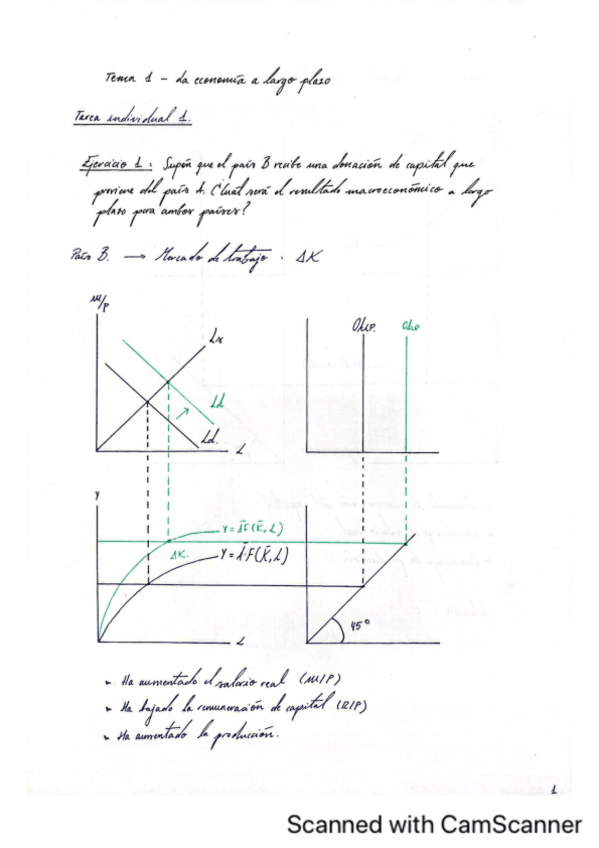 Tema 1 - La economía a largo plazo
Tarea individual 1.
Ejercicio 1: Supón que el país B recibe una donación de capital que
proviene del país A. ¿Cuál será el resultado macroeconómico a largo
plazo para ambos países?
País B. → Mercado de trabajo. ΔK
W/P
Ls
Ld
Ld.
L
OLP.
OLP
Y
Y = ĀF(K̄, L)
ΔK.
Y = Ā·F(K̄, L)
L
45º
- Ha aumentado el salario real (W/P)
- Ha bajado la remuneración de capital (R/P)
- Ha aumentado la producción.
1
Scanned with CamScanner